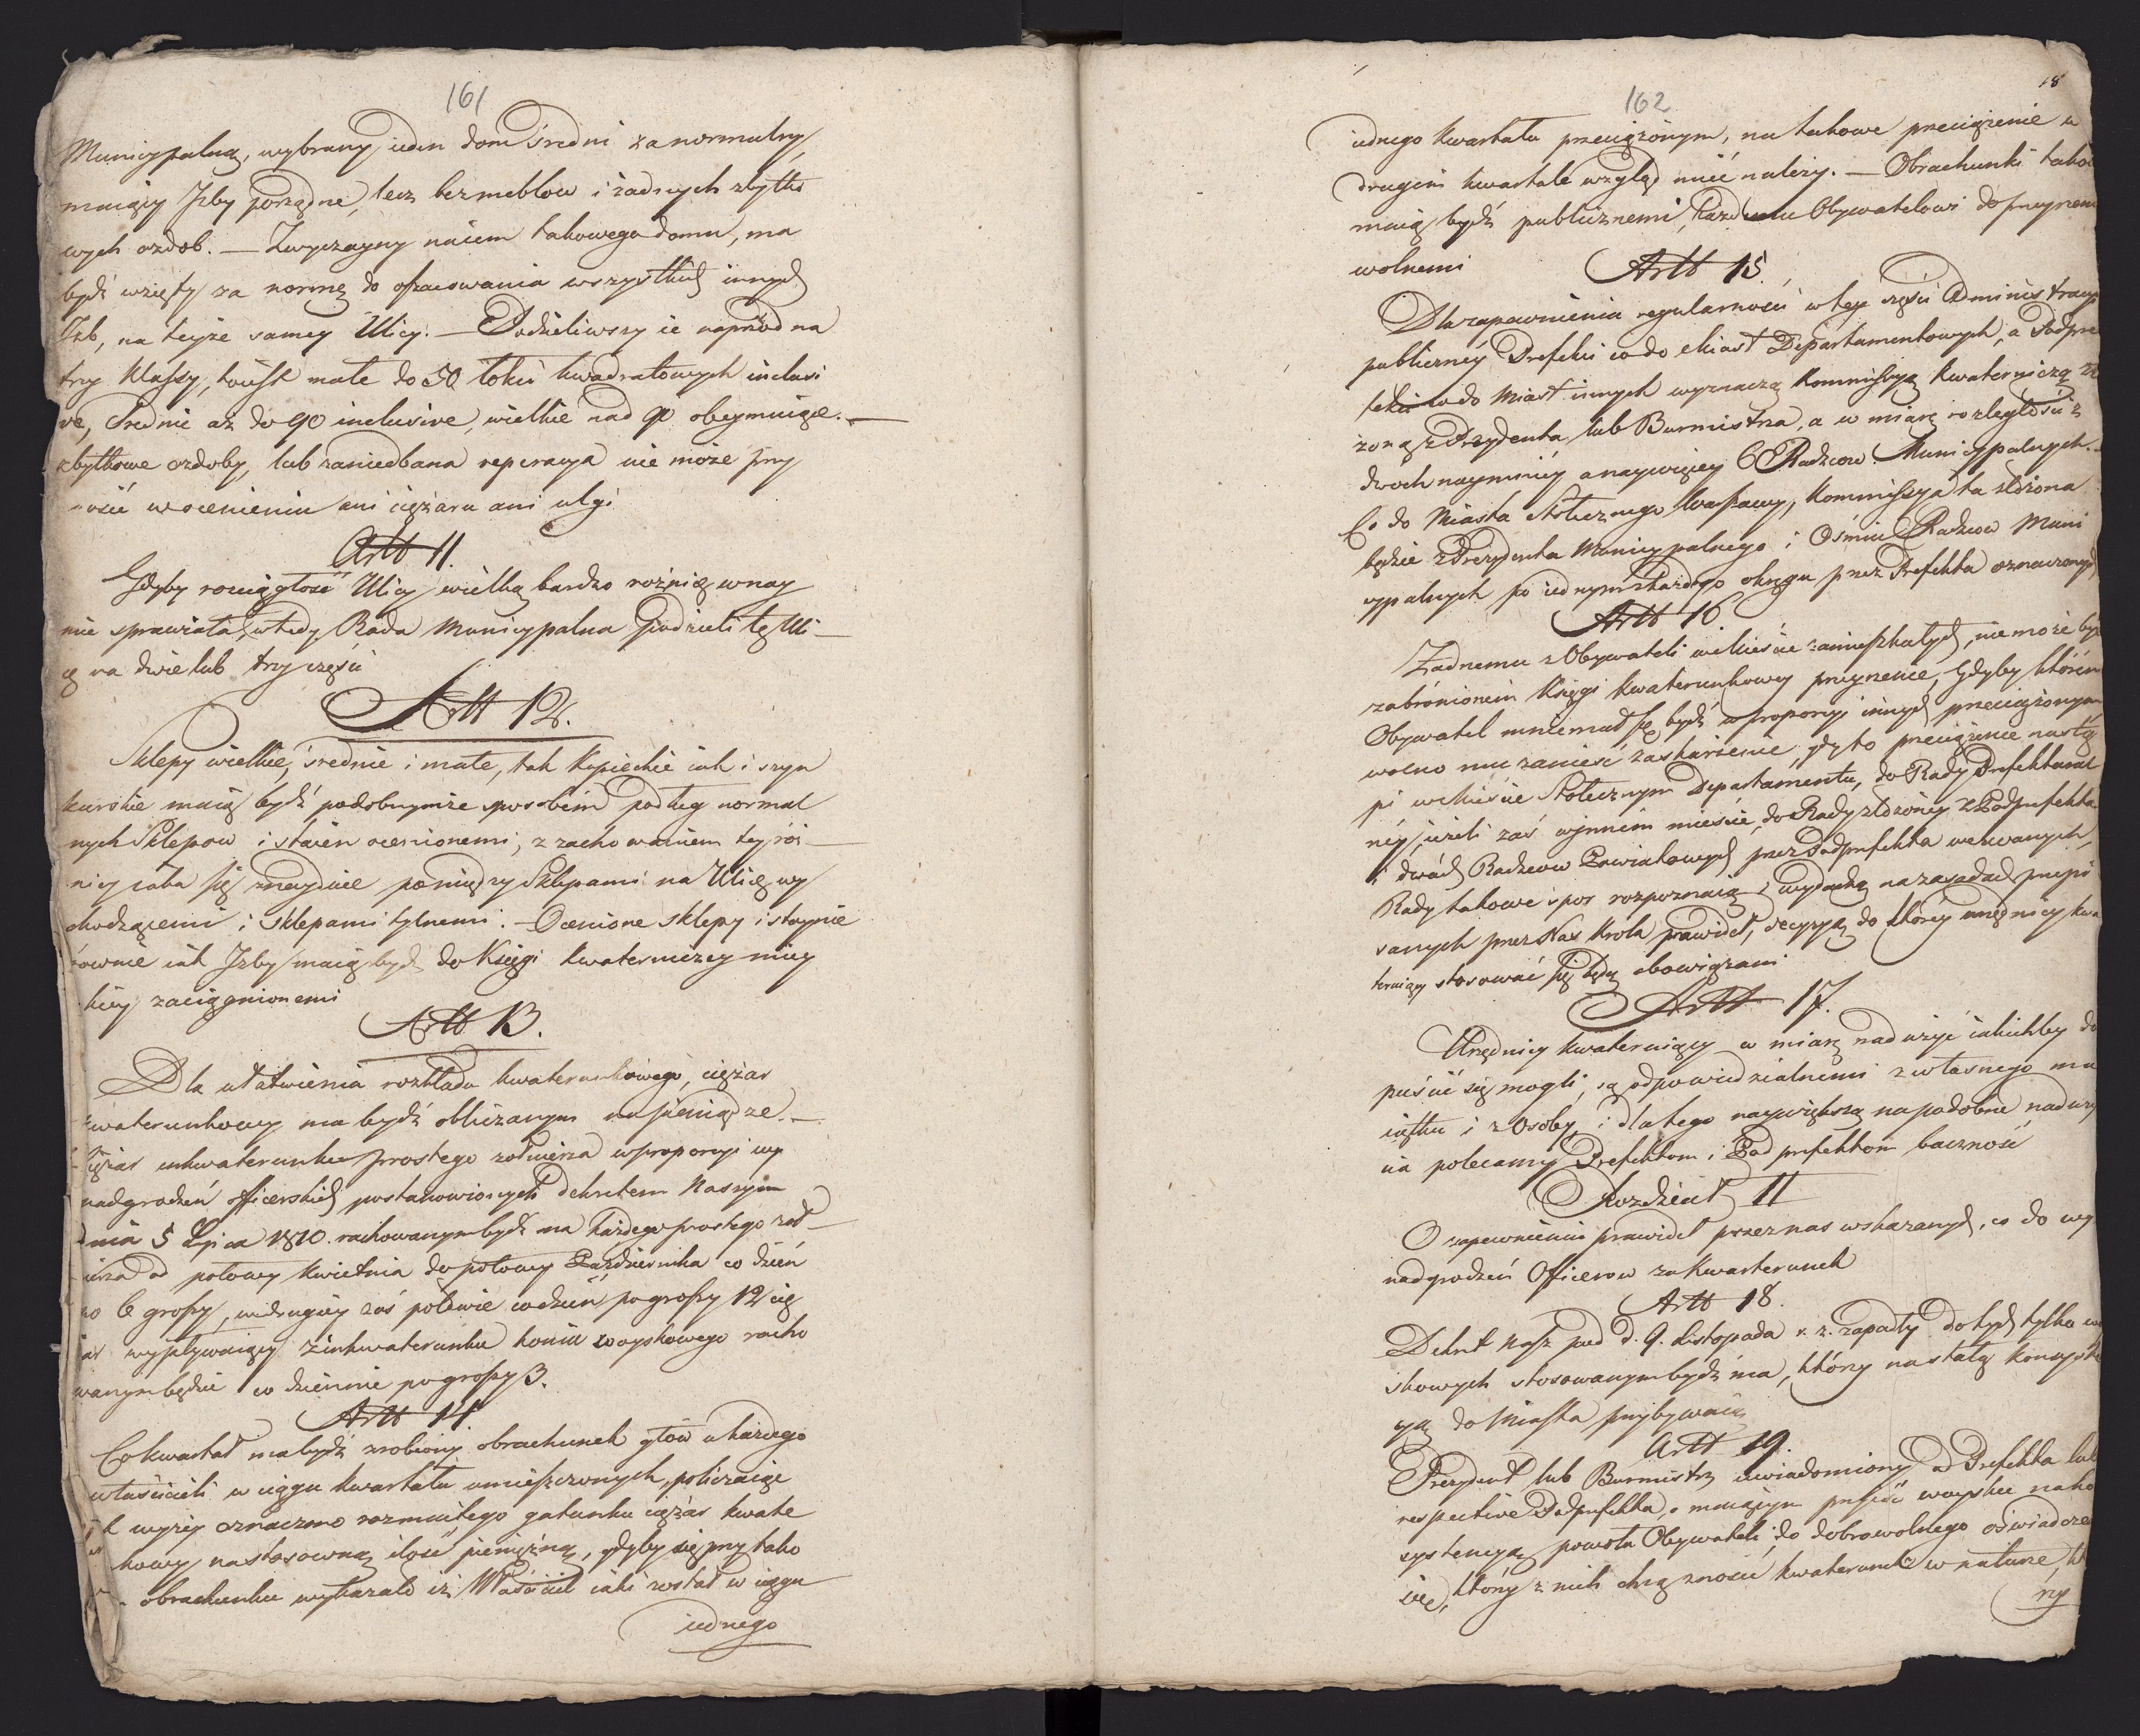 161
Municypalną, wybrany ieden dom Średni za normalny,
maiący Izby porządne, lecz bez meblow i żadnych zbytko
wych ozdob. — Zwyczayny naiem takowego domu, ma
bydź wzięty za normę do oszacowania wszystkich innych
Izb, na teyże samey Ulicy. — Podzieliwszy ie naprzod na
trzy Klassy, to iest małe do 50 łokci kwadratowych inclusi
ve, Srednie aż do 90 inclusive, wielkie nad 90 obeymuiące. —
zbytkowe ozdoby, lub zaniedbana reperacya nie może przy
nosić w ocenieniu ani ciężaru ani ulgi
Artt 11.
Gdyby rozciągłość Ulicy wielką bardzo rożnicę w nay
mie sprawiała, wtedy Rada Municypalna podzieli tę Uli —
cę na dwie lub trzy częsci
Artt 12.
Sklepy wielkie, średnie i małe, tak Kupieckie iak i szyn
karskie maią bydź podobnymże sposobem podług normal
nych Sklepow i staien ocenionemi, z zachowaniem tey róż —
nicy iaka się znaydzie pomiędzy Sklepami na Ulicę wy
chodzącemi i Sklepami tylnemi. — Ocenione sklepy i staynie
rownie iak Izby maią bydź do Księgi kwaterniczey miey
skiey zaciągnionemi
Artt 13.
Dla ułatwienia rozkładu kwaterunkowego, ciężar
kwaterunkowy ma bydź obliczanym na pieniądze. —
Ciężar inkwaterunku prostego żołnierza w proporcyi wy
nadgrodzeń officerskich postanowionych dekretem Naszym
dnia 5 Lipca 1810. rachowanym bydź ma każdego prostego żoł —
nierza od połowy Kwietnia do połowy Pazdziernika co dzień
po 6 groszy, w drugiey zaś połowie codzień po groszy 12 cię
żar wypływaiący z inkwaterunku konia woyskowego racho
wanym będzie co dziennie po groszy 3.
Artt 14.
Co kwartał ma bydź zrobiony obrachunek głow u każdego
właścicieli w ciągu kwartału umieszczonych, policzaiąc
wyżey oznaczono rozmaitego gatunku ciężar kwate
kowy na stosowną ilość pieniężną, gdyby się przy tako
obrachunku wykazało iż Właściciel iaki został w ciągu
iednego
162
18
iednego kwartału przeciążonym, na takowe przeciążenie w
drugim kwartale wzgląd mieć należy. — Obrachunki takow
maią bydź publicznemi, każdemu Obywatelowi do przeyrzen
wolnemi
Artt 15.
Dla zapewnienia regularności w tey części Administracyi
publiczney Prefekci co do Miast Departamentowych, a Podpre
fekci co do Miast innych wyznaczą Kommissyą kwaterniczą zło
żoną z Prezydenta lub Burmistrza, a w miarę rozległości z
dwóch naymniey a naywięcey 6 Radzcow Municypalnych.
Co do Miasta Stołecznego Warszawy, Kommissya ta złożona
będzie z Prezydenta Municypalnego i Ośmiu Radzcow Muni
cypalnych po iednym z każdego okręgu przez Prefekta oznaczonych
Artt 16.
Zadnemu z Obywateli w Mieście zamieszkałych, nie może bydź
zabronionem Księgi kwaterunkowey przeyrzenie, Gdyby któren
Obywatel mniemał się bydź w proporcyi innych przeciążonym
wolno mu zanieść zaskarżenie gdy to przeciążenie nastą
pi w Mieście Stołecznym Departamentu, do Rady Prefektural
ney, ieżeli zaś w innem mieście, do Rady złożoney z Podprefekta
i dwóch Radzcow Powiatowych przez Podprefekta wezwanych,
Rady takowe spor rozpoznaią i wydadzą na zasadach przepi
sanych przez Nas Krola prawideł, decyzyą do którey urzędnicy kwa
teruiący stosować się będą obowiązani
Artt 17.
Urzędnicy kwateruiący w miarę nadużyć iakichby do
puścić się mogli, są odpowiedzialnemi z własnego ma
iątku i z Osoby, i dlatego naywiększą na podobne naduży
cia polecamy Prefektom i Podprefektom baczność
Rozdział II
O zapewnieniu prawideł przez nas wskazanych, co do wy
nadgrodzeń Officerow za Kwarterunek
Artt 18.
Dekret Nasz pod d. 9. Listopada r. z. zapadły do tych tylko wo
skowych stosowanym bydź ma, którzy na stałą Konsyste
cyą do Miasta przybywaią
Artt 19.
Prezydent lub Burmistrz uwiadomiony od Prefekta lub
respective Podprefekta, o maiącym przyiść woysku na ko
systencyą powoła Obywateli, do dobrowolnego oświadcze
się, którzy z nich chcą znosić kwaterunek w naturze, kt
rzy